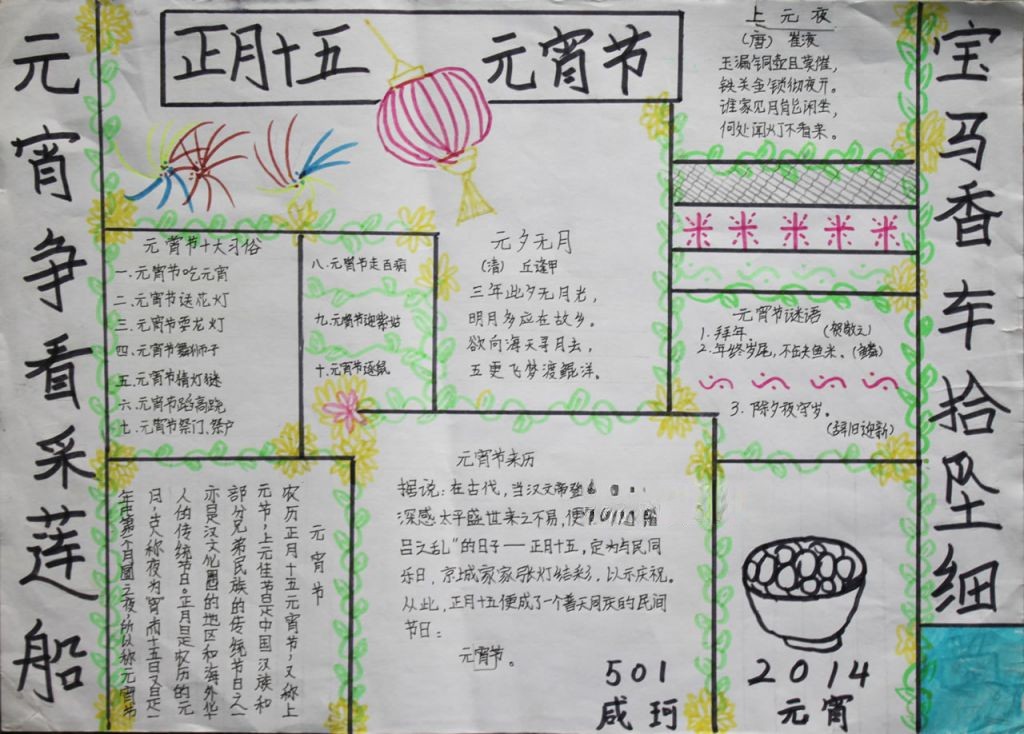 元宵争看采莲船
宝马香车拾坠细
正月十五 元宵节
上元夜
(唐) 崔液
玉漏铜壶且莫催,
铁关金锁彻夜开。
谁家见月能闲坐,
何处闻灯不看来。
元宵节十大习俗
一.元宵节吃元宵
二.元宵节送花灯
三.元宵节耍龙灯
四.元宵节舞狮子
五.元宵节猜灯谜
六.元宵节踏高跷
七.元宵节祭门、祭户
八.元宵节走百病
九.元宵节迎紫姑
十.元宵节逐鼠
元夕无月
(清) 丘逢甲
三年此夕无月光,
明月多应在故乡。
欲向海天寻月去,
五更飞梦渡鲲洋。
元宵节谜语
1.拜年 (贺敬之)
2.年终岁尾,不缺鱼米、(鳞)
3.除夕夜守岁。
(辞旧迎新)
元宵节
农历正月十五元宵节,又称上
元节,上元佳节是中国汉族和
部分兄弟民族的传统节日之一
亦是汉文化圈的地区和海外华
人的传统节日。正月是农历的元
月,古人称夜为宵,而十五日又是一
年中第一个月圆之夜,所以称元宵节
元宵节来历
据说:在古代,当汉文帝登
深感太平盛世来之不易,便
吕之乱”的日子——正月十五,定为与民同
乐日,京城家家张灯结彩,以示庆祝。
从此,正月十五便成了一个普天同庆的民间
节日:
元宵节。
501
咸珂
2014
元宵